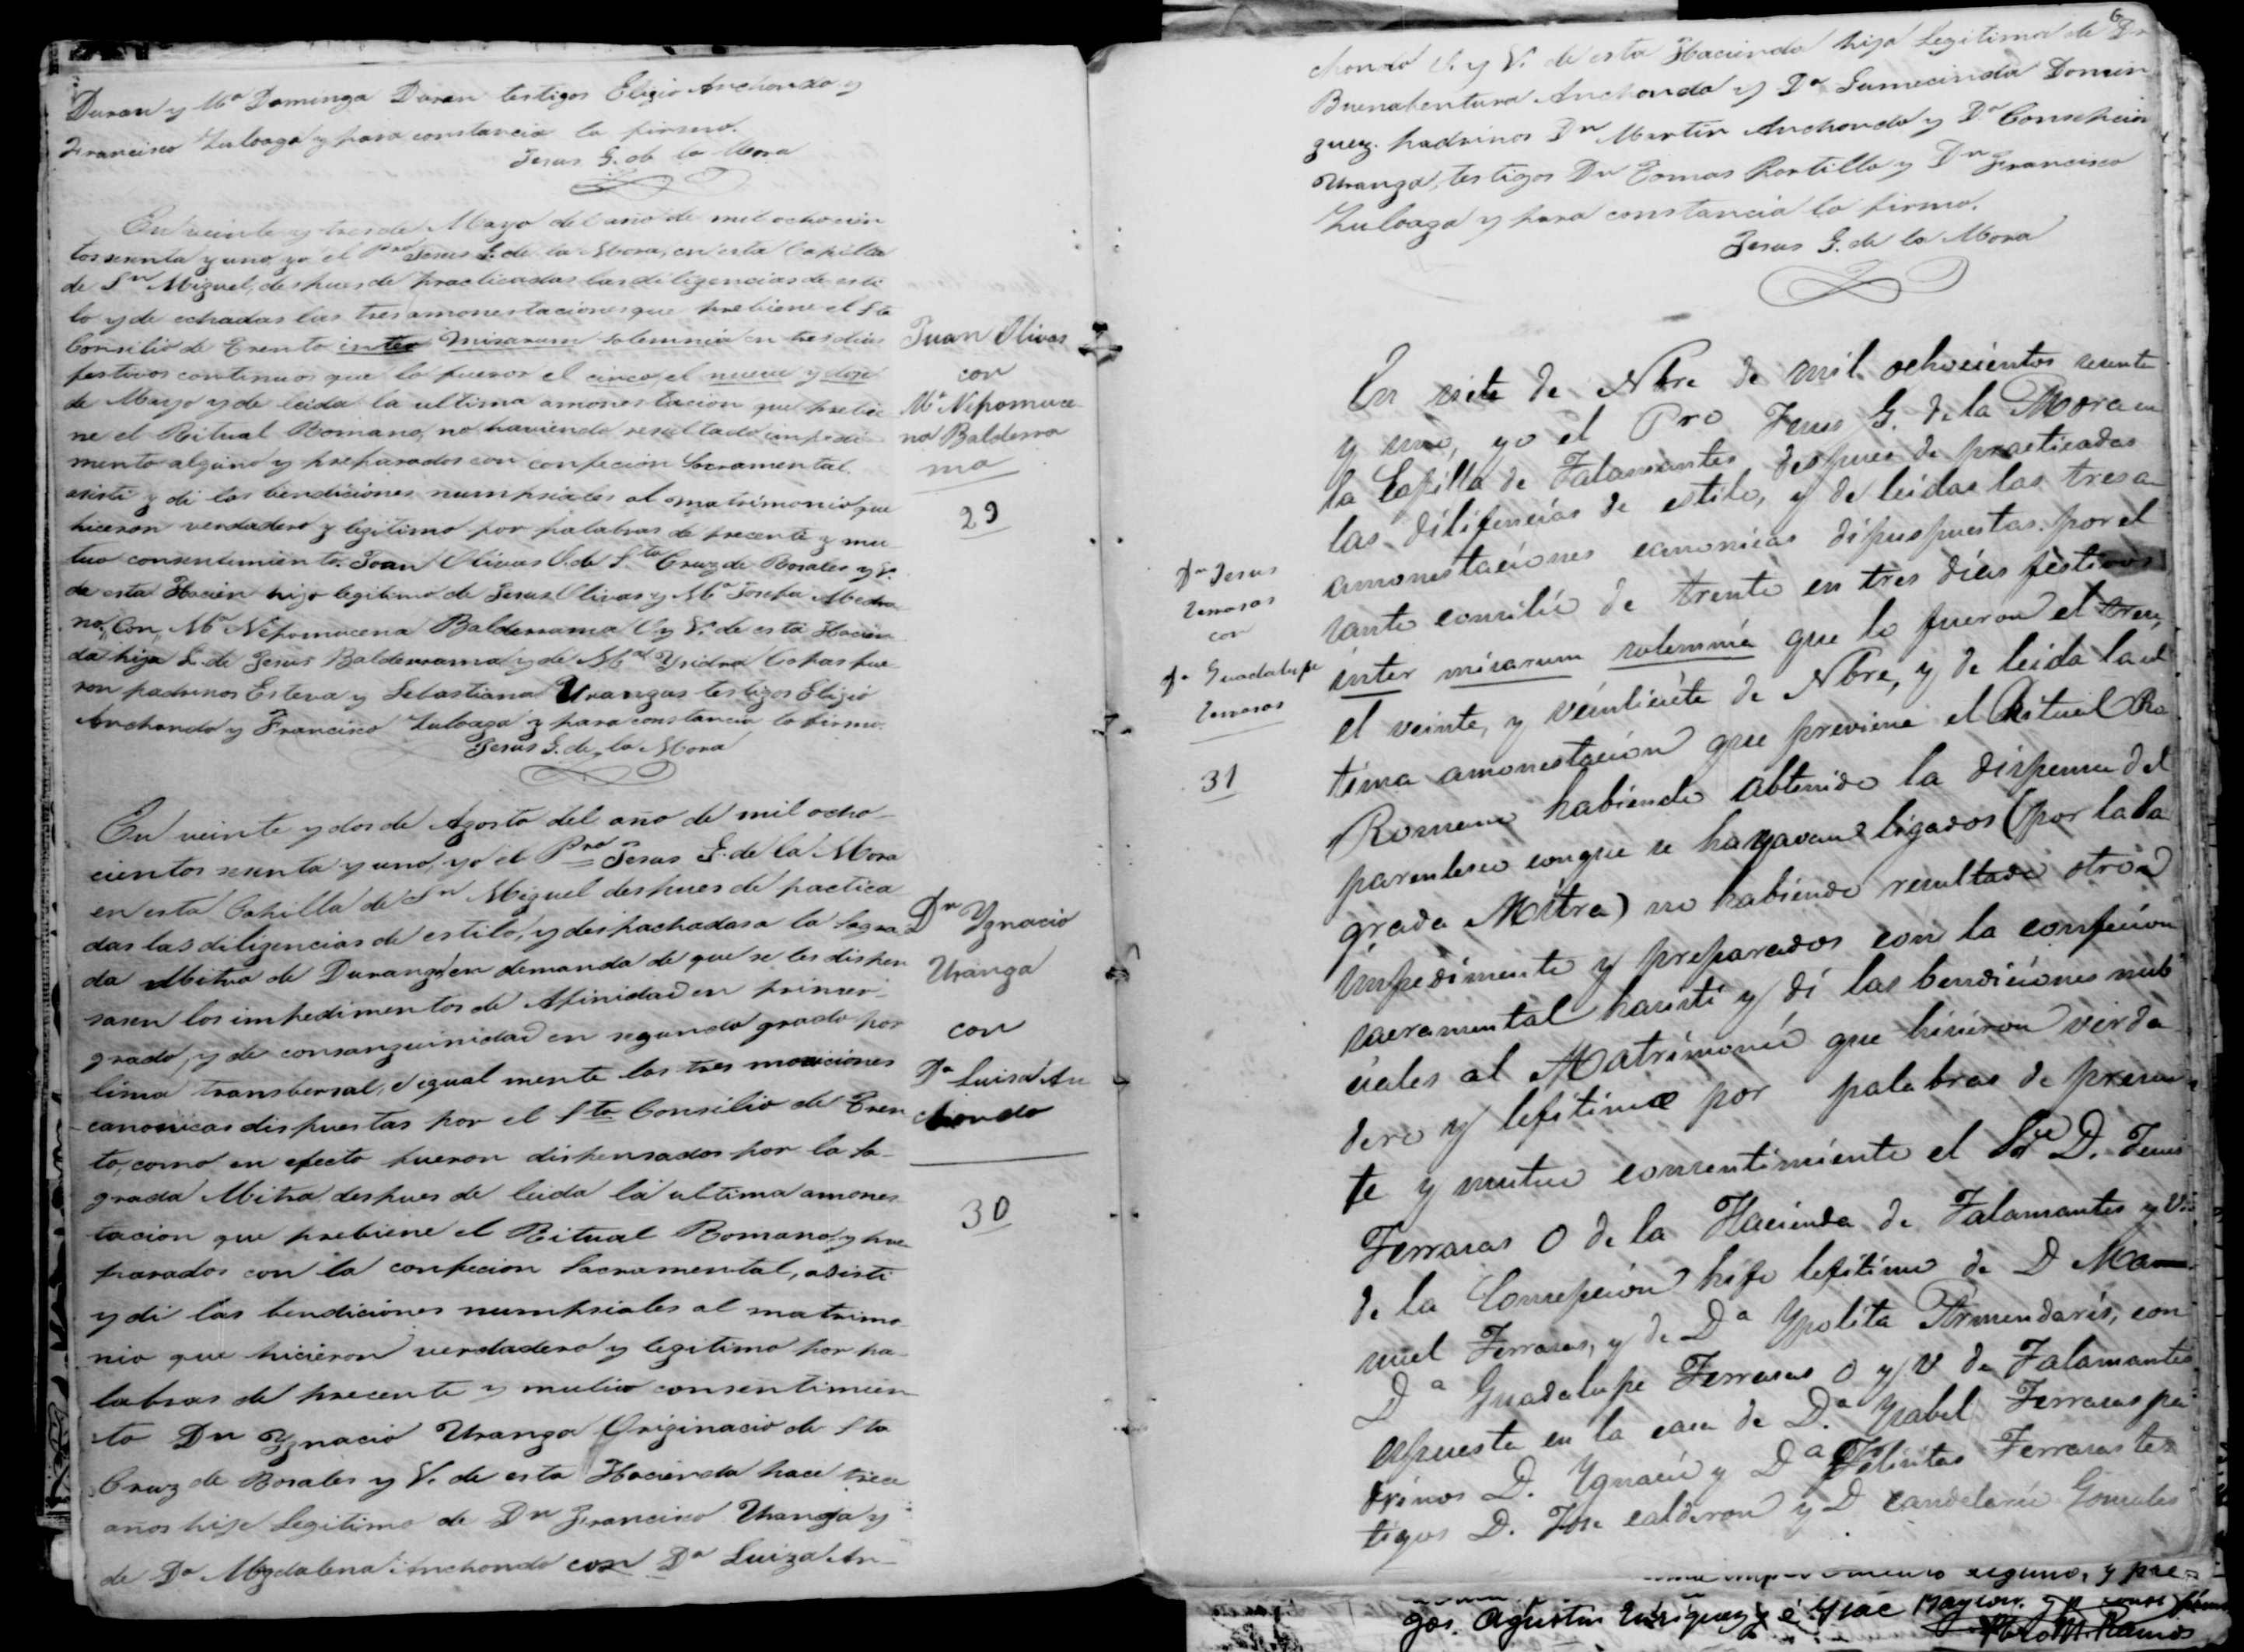 Duran y Mª Dominga Duran testigos Eligio Anchondo y
Francisco Zuloaga y para constancia lo firmo.
Jesus G. de la Mora
En veinte y tres de Mayo del año de mil ochocien
tos sesenta y uno, yo el Pro Jesus G. de la Mora, en esta Capilla
de Sn Miguel, despues de practicadas las diligencias de esti
lo y de echadas las tres amonestaciones que prebiene el Sto
Consilio de Trento inter misarum solemnia en tres dias
festivos continuos que lo fueron el cinco, el nueve y doce
de Mayo y de leida la ultima amonestacion que prebie
ne el Ritual Romano, no haviendo resultado impedi
mento alguno y preparados con confecion Sacramental
asisti y di las bendiciones numpsiales al matrimonio que
hiceron verdadero y legitimo por palabras de precente y mu
tuo consentimiento. Juan Olivas O. de Sta Cruz de Rosales y V.
de esta Hacien hijo legitimo de Jesus Olivas y Mª Josefa Medra
no, Con, Mª Nepomucena Balderrama O y V. de esta Hacien
da hija L. de Jesus Balderrama y de Mª Ysidra Copas fue
ron padrinos Esteva y Sebastiana Urangas testigos Eligio
Anchondo y Francisco Zuloaga y para constancia lo firmo.
Jesus G. de la Mora
Juan Olivas
con
Mª Nepomuce
na Balderra
ma
29
En veinte y dos de Agosto del año de mil ocho
cientos sesenta y uno, yo el Pro Jesus G. de la Mora
en esta Capilla de Sn Miguel despues de practica
das las diligencias de estilo, y despachadas a la Sagra
da Mitra de Durango en demanda de que se les dispen
sasen los impedimentos de Afinidad en primer
grado, y de consanguinidad en segundo grado por
linia transbersal, e igual mente las tres moniciones
canonicas dispuestas por el Sto Consilio de Tren
to, como en efecto fueron dispensados por la Sa
grada Mitra despues de leida la ultima amones
tacion que prebiene el Ritual Romano, y pre
parados con la confecion Sacramental, asisti
y di las bendiciones numpsiales al matrimo
nio que hicieron verdadero y legitimo por pa
labras de precente y mutuo consentimien
to Dn Ygnacio Uranga Originacio de Sta
Cruz de Rosales y V. de esta Hacienda hace trece
años hijo Legitimo de Dn Francisco Uranga y
de Da Magdalena Anchondo con Da Luiza An-
Dn Ygnacio
Uranga
con
Da Luisa An
chondo
30
6
chondo O. y V. de esta Hacienda hija Legitima de Dn
Buenabentura Anchondo y Da Gumecinda Domin
guez. padrinos Dn Martin Anchondo y Da Consepcion
Uranga, testigos Dn Tomas Portillo y Dn Francisco
Zuloaga y para constancia lo firmo.
Jesus G. de la Mora
En siete de Nbre de mil ochocientos sesenta
y uno, yo el Pro Jesus G. de la Mora en
la Capilla de Talamantes despues de practicadas
las diligencias de estilo, y de leidas las tres a
amonestaciones canonicas dispuspuestas por el
santo concilio de trento en tres dias festivos
inter misarum solemnia que lo fueron el
el veinte, y veintisiete de Nbre, y de leida la ul
tima amonestacion que previene el Ritual Ro
Romano habiendo obtenido la dispensa del
parentesco conque se hayavan ligados (por la Sa
grada Mitra) no habiendo resultado otro
impedimento y preparados con la confecion
sacramental hasisti y di las bendiciones nub
ciales al Matrimonio que hisieron verda
dero y lejitimo por palabras de presen
te y mutuo consentimiento el Sr D. Jesus
Terrasas O de la Hacienda de Talamantes y V.
de la Consepcion hijo lejitimo de D Ma
nuel Terrasas, y de Da Ypolita Armendaris, con
Da Guadalupe Terrasas O y V de Talamantes
depuesta en la casa de Da Ysabel Terrasas pa
drinos D. Ygnacio y Da Felicitas Terrasas tes
tigos D. Jose calderon y D candelario Gonsales
Dn Jesus
Terrasas
con
Da Guadalupe
Terrasas
31
alguno, y pre
gos. Agustin Enriquez
Ramos